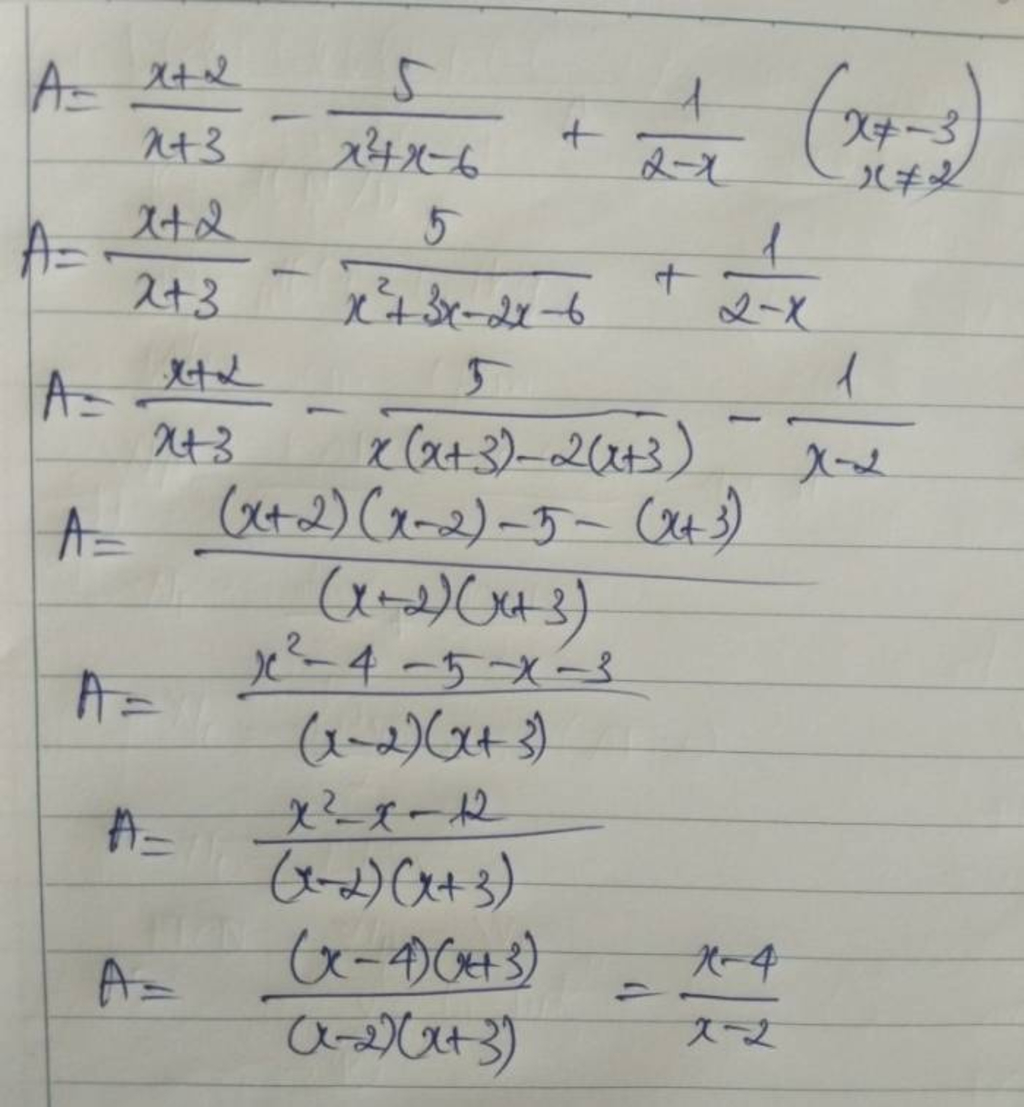 A = \frac{x+2}{x+3} - \frac{5}{x^2+x-6} + \frac{1}{2-x} \begin{pmatrix} x \neq -3 \\ x \neq 2 \end{pmatrix}
A = \frac{x+2}{x+3} - \frac{5}{x^2+3x-2x-6} + \frac{1}{2-x}
A = \frac{x+2}{x+3} - \frac{5}{x(x+3)-2(x+3)} - \frac{1}{x-2}
A = \frac{(x+2)(x-2)-5-(x+3)}{(x-2)(x+3)}
A = \frac{x^2-4-5-x-3}{(x-2)(x+3)}
A = \frac{x^2-x-12}{(x-2)(x+3)}
A = \frac{(x-4)(x+3)}{(x-2)(x+3)} = \frac{x-4}{x-2}